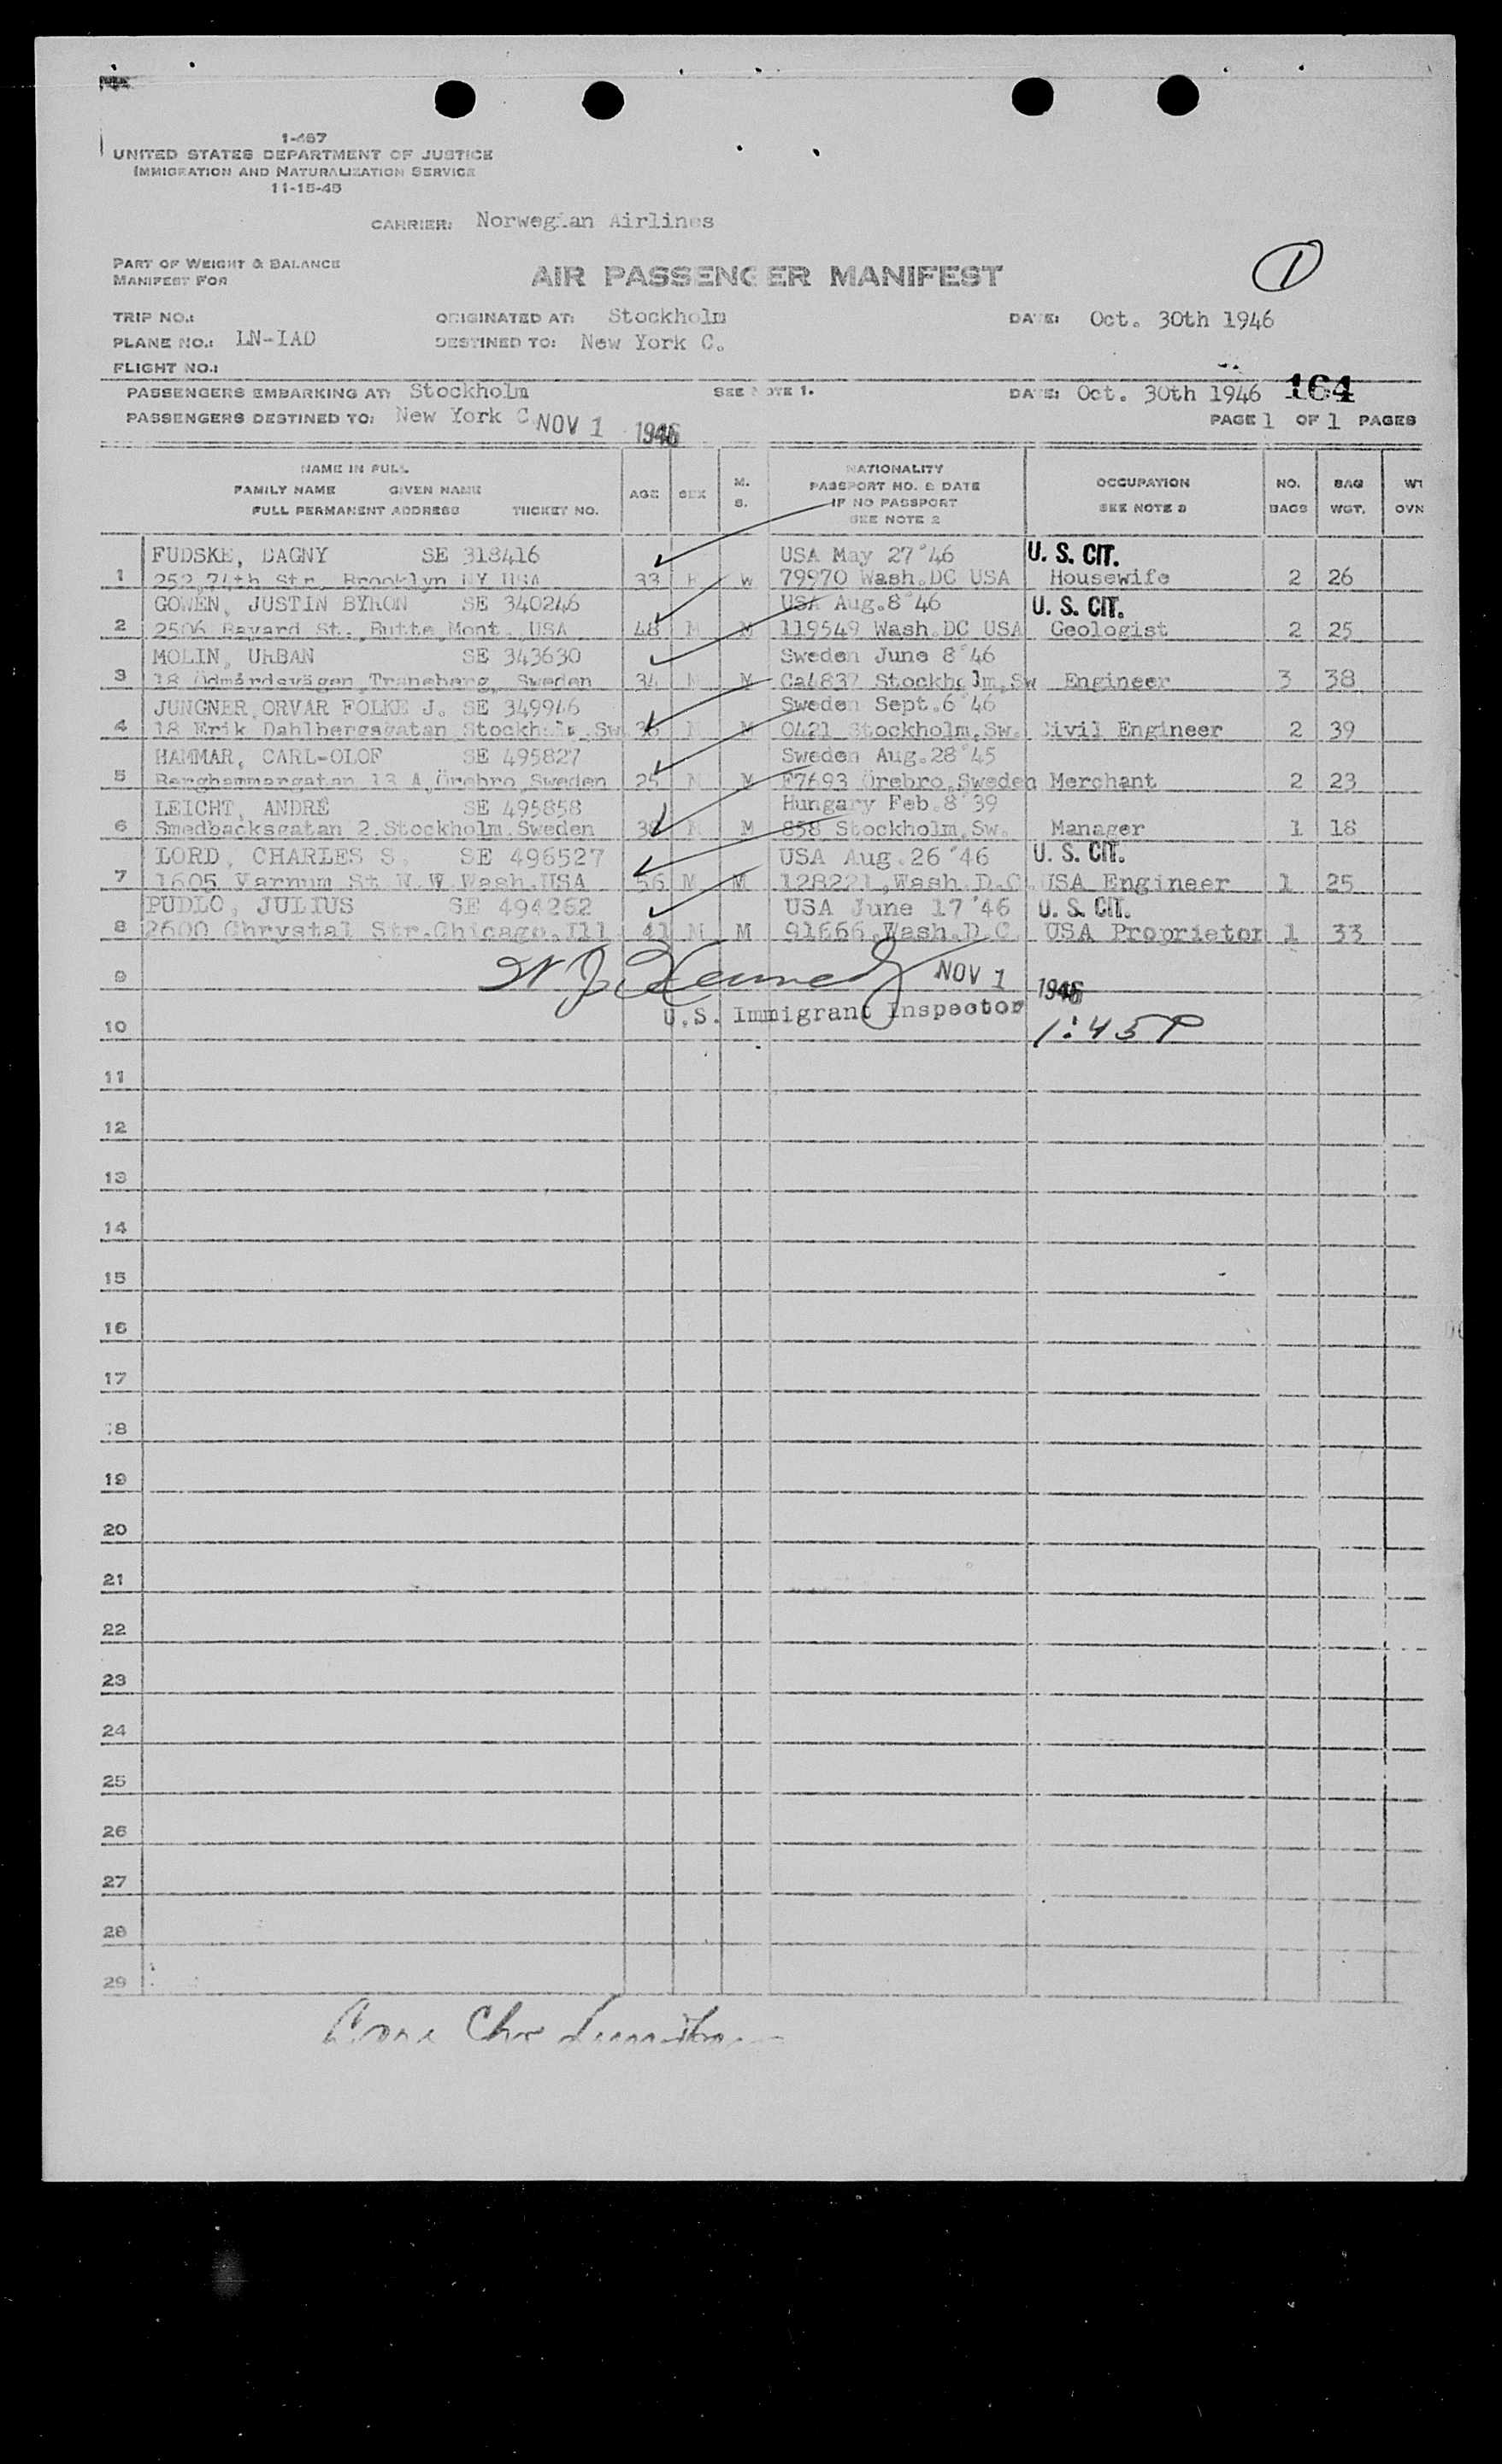 1-467
UNITED STATES DEPARTMENT OF JUSTICE
IMMIGRATION AND NATURALIZATION SERVICE
11-15-45
CARRIER: Norwegian Airlines
PART OF WEIGHT & BALANCE
MANIFEST FOR
AIR PASSENGER MANIFEST
1
TRIP NO.: ORIGINATED AT: Stockholm DATE: Oct. 30th 1946
PLANE NO.: LN-IAD DESTINED TO: New York C.
FLIGHT NO.:
PASSENGERS EMBARKING AT: Stockholm SEE NOTE 1. DATE: Oct. 30th 1946 164
PASSENGERS DESTINED TO: New York C NOV 1 1946 PAGE 1 OF 1 PAGES
NAME IN FULL
FAMILY NAME GIVEN NAME
FULL PERMANENT ADDRESS TICKET NO.
AGE
SEX
M.
S.
NATIONALITY
PASSPORT NO. & DATE
IF NO PASSPORT
SEE NOTE 2
OCCUPATION
SEE NOTE 3
NO.
BAGS
BAG
WGT.
FUDSKE, DAGNY SE 318416 USA May 27'46 U. S. CIT.
1 252,74th Str. Brooklyn NY USA 33 W 79970 Wash.DC USA Housewife 2 26
GOWEN, JUSTIN BYRON SE 340246 USA Aug.8'46 U. S. CIT.
2 2506 Bayard St.,Butte,Mont. USA 48 M M 119549 Wash.DC USA Geologist 2 25
MOLIN, URBAN SE 343630 Sweden June 8'46
3 18 Ödmårdsvägen,Traneberg, Sweden 34 M M Ca4837 Stockholm,Sw Engineer 3 38
JUNGNER,ORVAR FOLKE J. SE 349946 Sweden Sept.6'46
4 18 Erik Dahlbergsgatan Stockholm,Sw. M M 0421 Stockholm,Sw. Civil Engineer 2 39
HAMMAR, CARL-OLOF SE 495827 Sweden Aug.28'45
5 Berghammargatan 13 A,Örebro,Sweden 25 M M F7693 Örebro,Sweden Merchant 2 23
LEICHT, ANDRÉ SE 495858 Hungary Feb.8'39
6 Smedbacksgatan 2.Stockholm.Sweden M M 838 Stockholm,Sw. Manager 1 18
LORD, CHARLES S. SE 496527 USA Aug.26'46 U. S. CIT.
7 1605 Varnum St N.W.Wash.USA 56 M M 128221,Wash.D.C.USA Engineer 1 25
PUDLO, JULIUS SE 494262 USA June 17'46 U. S. CIT.
8 2600 Chrystal Str.Chicago.Ill 41 M M 91666.Wash.D.C. USA Proprietor 1 33
9 W J Kennedy NOV 1 1946
U.S. Immigrant Inspector
10 1:45P
11
12
13
14
15
16
17
18
19
20
21
22
23
24
25
26
27
28
29